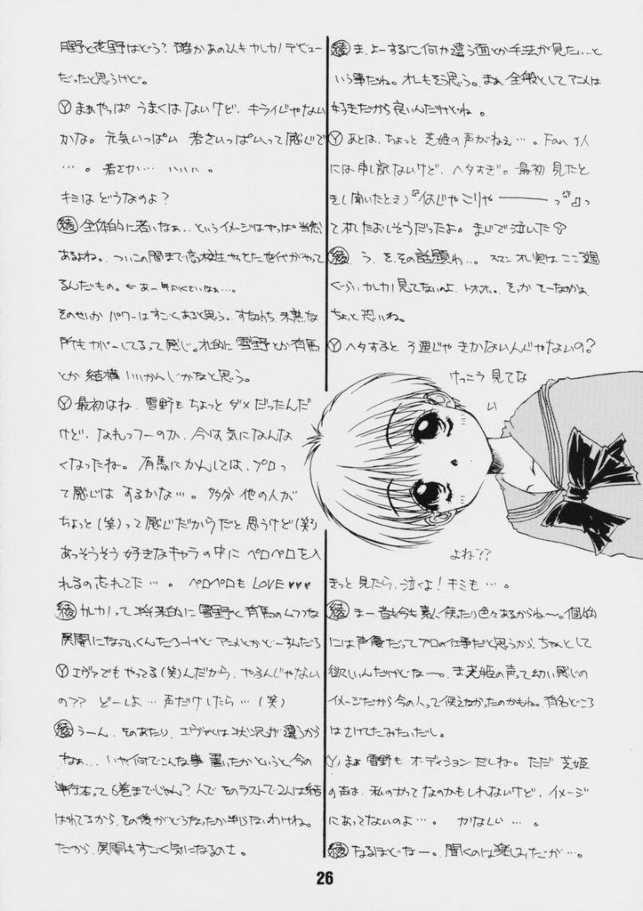 月野と花野はどう？確かあの2人もカレカノデビュー
だったと思うけど。
Ⓨ まぁやっぱ うまくはないけど、キライじゃない
かな。元気いっぱい 若さいっぱいって感じで
…。若さか… いいい。
キミはどうなのよ？
綾 全体的に若いなぁ…というイメージはやっぱ当然
あるよね。ついこの間まで高校生やってた世代がやって
るんだもの。
そのせいか パワーはすごくあると思う。すなわち、未熟な
所もカバーしてるって感じ。オレ的に雪野とか有馬
とか結構いいかんじかなと思う。
Ⓨ 最初はね、雪野もちょっとダメだったんだ
けど、なれっつーのか、今は気になんな
くなったね。有馬にかんしては、プロっ
て感じはするかな…。多分他の人が
ちょっと（笑）って感じだからだと思うけど（笑）
あっそうそう好きなキャラの中にペロペロを入
れるの忘れてた…。ペロペロもLOVE♥♥♥
綾 カレカノって将来的に雪野と有馬のムフフな
展開になっていくんだろーけどアニメとかどーすんだろ
Ⓨ エヴァでもやってる（笑）んだから、やるんじゃない
の？？ どーしよ…声だけしたら…（笑）
綾 うーん、そのあたり、エヴァとは状況が違うから
なぁ… いや何でこんな事書いたかというと、今の
単行本って6巻まででじゃん？んで そのラストで2人は結
ばれてるから、その後がどうなったか判らないわけね。
だから、展開もすごく気になるのさ。
綾 ま、よーするに何か違う面とか手法が見たい…と
いう事だね。オレもそう思う。まぁ全般としてアニメは
好きだから良いんだけどね。
Ⓨ あとは、ちょっと芝姫の声がねぇ…。Fanの人
には申し訳ないけど、ヘタすぎ。最初見たと
き（聞いたとき）『なんじゃこりゃーーーっ』っ
てテレたおしそうだったよ。まじで泣いた
綾 う、を、その話題わ…。スマン オレ実はここ3週
ぐらい、カレカノ見てないのよ、トホホ。
ちょっと悲しいね。
Ⓨ ヘタすると3週じゃきかないんじゃないの？
けっこう見てな
い
よね？？
きっと見たら、泣くよ！キミも…。
綾 まー昔も今も素人使ったり色々あるからねー。個人的
には声優だってプロの仕事だと思うから、ちゃんとして
欲しいんだけどなー。ま芝姫の声って幼い感じの
イメージだから今の人って使えなかったのかもね。有名どころ
はさけてたみたいだし。
Ⓨ まぁ雪野もオーディションだしね。ただ芝姫
の声は、私のかってなのかもしれないけど、イメージ
にあってないのよ…。かなしい…。
綾 なるほどなー。聞くのは楽しみだが…。
26